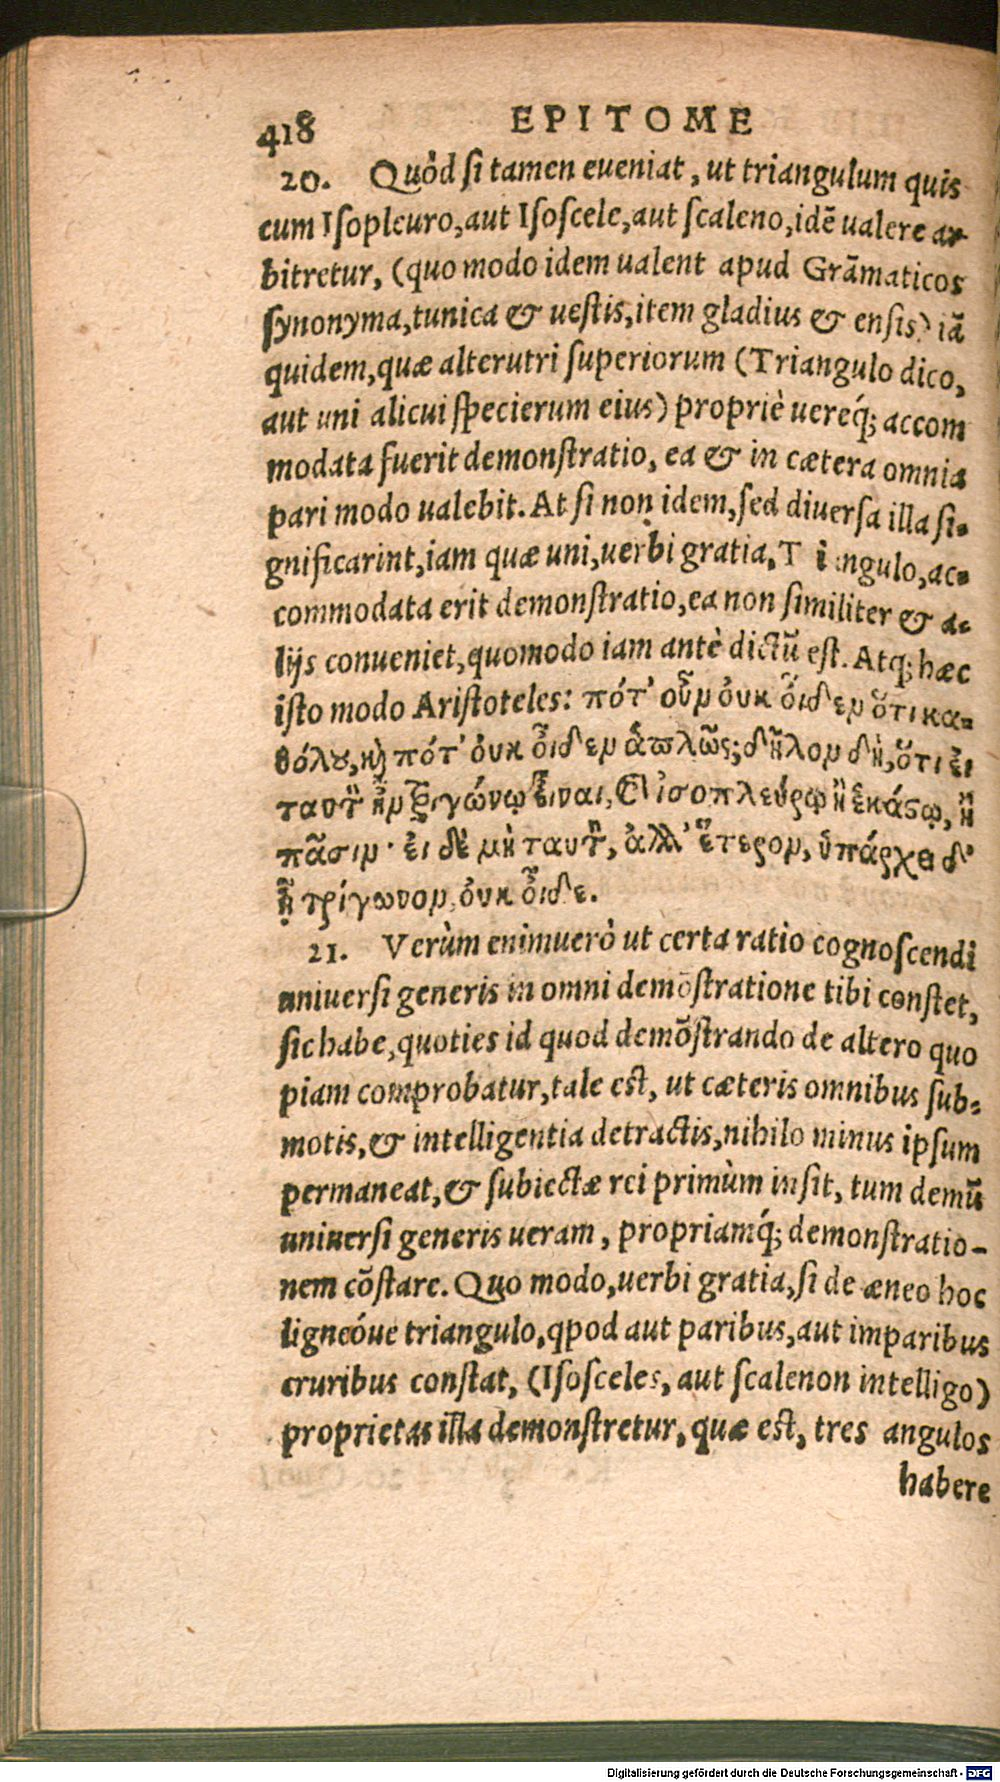 418 EPITOME
20. Quòd si tamen eveniat, ut triangulum quis
cum Isopleuro, aut Isoscele, aut scaleno, idē ualere ar-
bitretur, (quo modo idem ualent apud Grāmaticos
synonyma, tunica & uestis, item gladius & ensis) iā
quidem, quæ alterutri superiorum (Triangulo dico,
aut uni alicui specierum eius) propriè uereq́; accom
modata fuerit demonstratio, ea & in cætera omnia
pari modo ualebit. At si non idem, sed diuersa illa si-
gnificarint, iam quæ uni, uerbi gratia, T i ngulo, ac-
commodata erit demonstratio, ea non similiter & a-
lijs conueniet, quomodo iam antè dictū est. Atq; hæc
isto modo Aristoteles: πότ' οὖν ὀυκ ὀ͂ιδεν ὅτι κα-
θόλου, καὶ πότ' ὀυκ ὀ͂ιδεν ἁπλῶς; δῆλον δὴ, ὅτι ἐι
ταυτὸ ἦν τριγώνῳ εἶναι, καὶ ἰσοπλεύρῳ ἢ ἑκάστῳ, ἢ
πᾶσιν· ἐι δὲ μὴ ταυτὸ, ἀλλ' ἕτερον, ὑπάρχει δ'
ᾗ τρίγωνον, ὀυκ ὀ͂ιδε.
21. Verùm enimuerò ut certa ratio cognoscendi
uniuersi generis in omni demōstratione tibi constet,
sic habe, quoties id quod demōstrando de altero quo
piam comprobatur, tale est, ut cæteris omnibus sub-
motis, & intelligentia detractis, nihilo minus ipsum
permaneat, & subiectæ rei primùm insit, tum demū
uniuersi generis ueram, propriamq́; demonstratio-
nem cōstare. Quo modo, uerbi gratia, si de æneo hoc
ligneóue triangulo, qpod aut paribus, aut imparibus
cruribus constat, (Isosceles, aut scalenon intelligo)
proprietas illa demonstretur, quæ est, tres angulos
habere
Digitalisierung gefördert durch die Deutsche Forschungsgemeinschaft - DFG